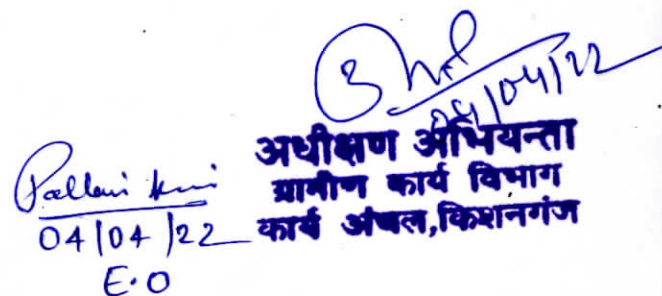 04/04/22
अधीक्षण अभियन्ता
ग्रामीण कार्य विभाग
कार्य अंचल,किशनगंज
Pallavi
04/04/22
E.O